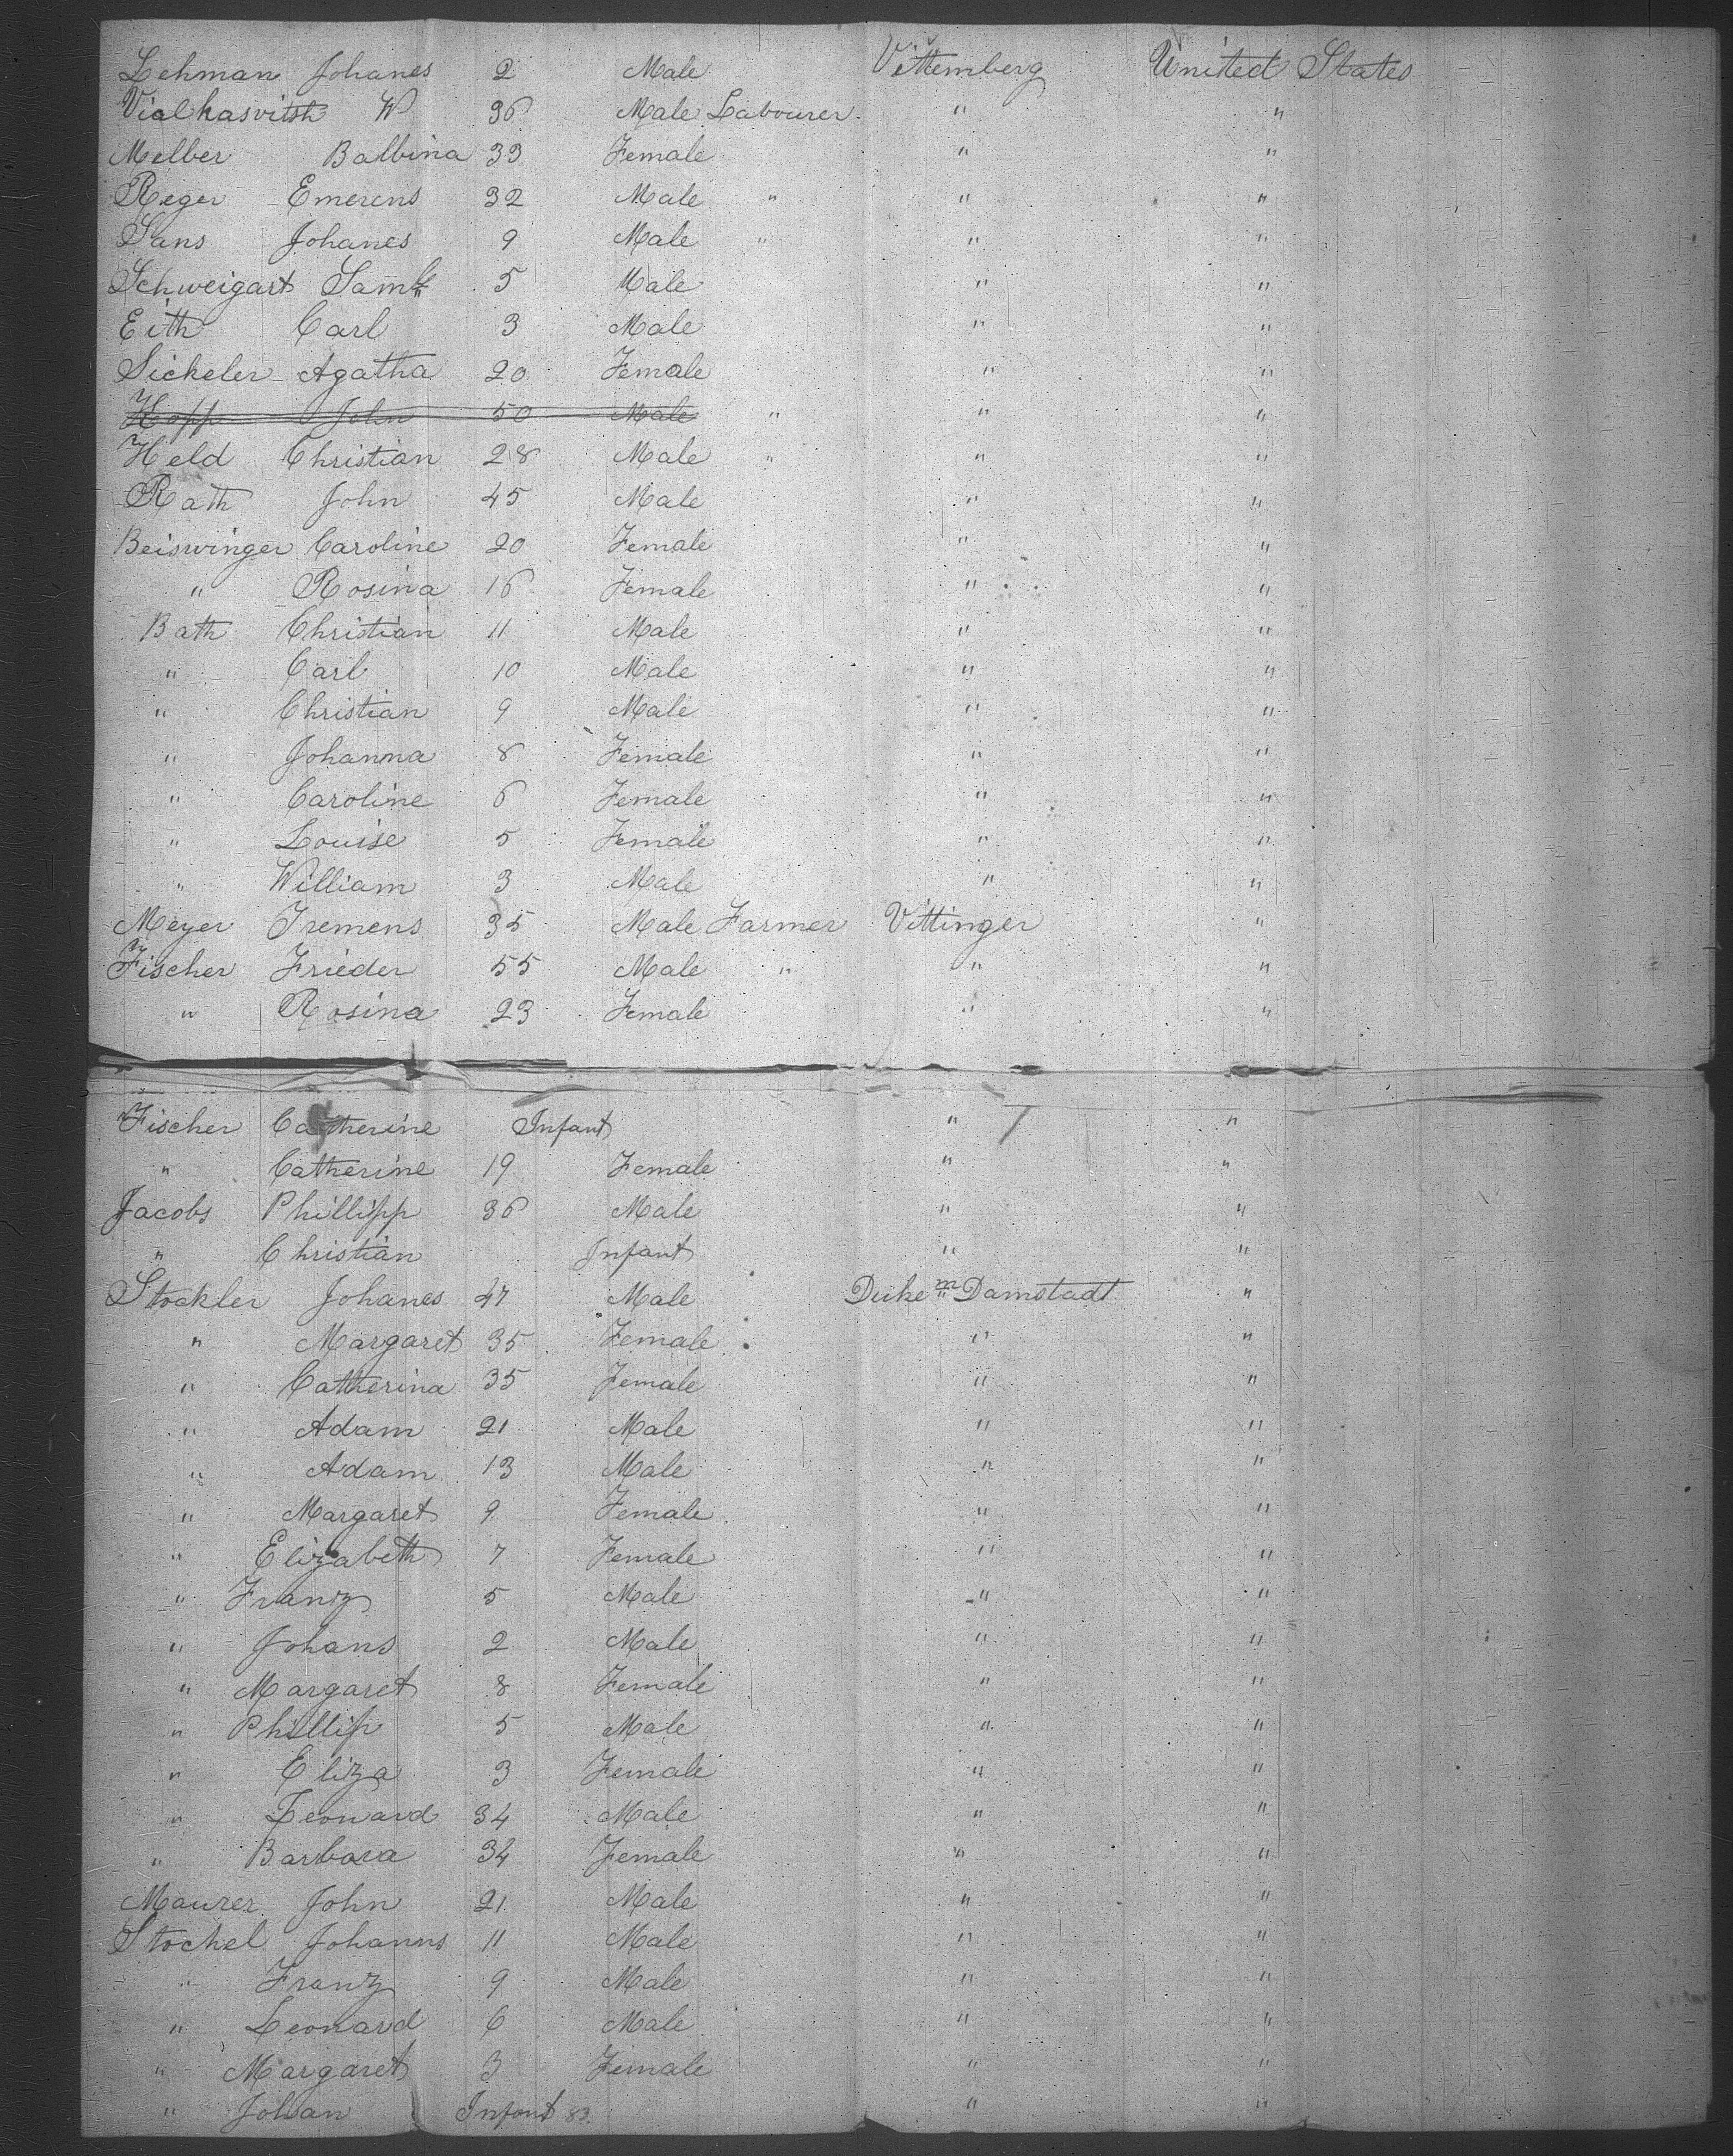 Lehman Johanes 2 Male Vittemberg United States
Vialkasvitsh W 36 Male Labourer " "
Melber Balbina 33 Female " "
Reger Emerens 32 Male " " "
Sans Johanes 9 Male " " "
Schweigart Saml 5 Male " "
Eith Carl 3 Male " "
Sickeler Agatha 20 Female " "
Kopp John 50 Male " " "
Held Christian 28 Male " " "
Rath John 45 Male " "
Beiswinger Caroline 20 Female " "
" Rosina 16 Female " "
Bath Christian 11 Male " "
" Carl 10 Male " "
" Christian 9 Male " "
" Johanna 8 Female " "
" Caroline 6 Female " "
" Louise 5 Female " "
" William 3 Male " "
Meyer Iremens 35 Male Farmer Vittinger "
Fischer Frieder 55 Male " " "
" Rosina 23 Female " "
Fischer Catherine Infant " "
" Catherine 19 Female " "
Jacobs Phillipp 36 Male " "
" Christian Infant " "
Stockler Johanes 47 Male Duke m Damstadt "
" Margaret 35 Female " "
" Catherina 35 Female " "
" Adam 21 Male " "
" Adam 13 Male " "
" Margaret 9 Female " "
" Elizabeth 7 Female " "
" Franz 5 Male " "
" Johans 2 Male " "
" Margaret 8 Female " "
" Phillip 5 Male " "
" Eliza 3 Female " "
" Leonard 34 Male " "
" Barbara 34 Female " "
Maurer John 21 Male " "
Stochel Johanns 11 Male " "
" Franz 9 Male " "
" Leonard 6 Male " "
" Margaret 3 Female " "
" Johan Infant 83. " "